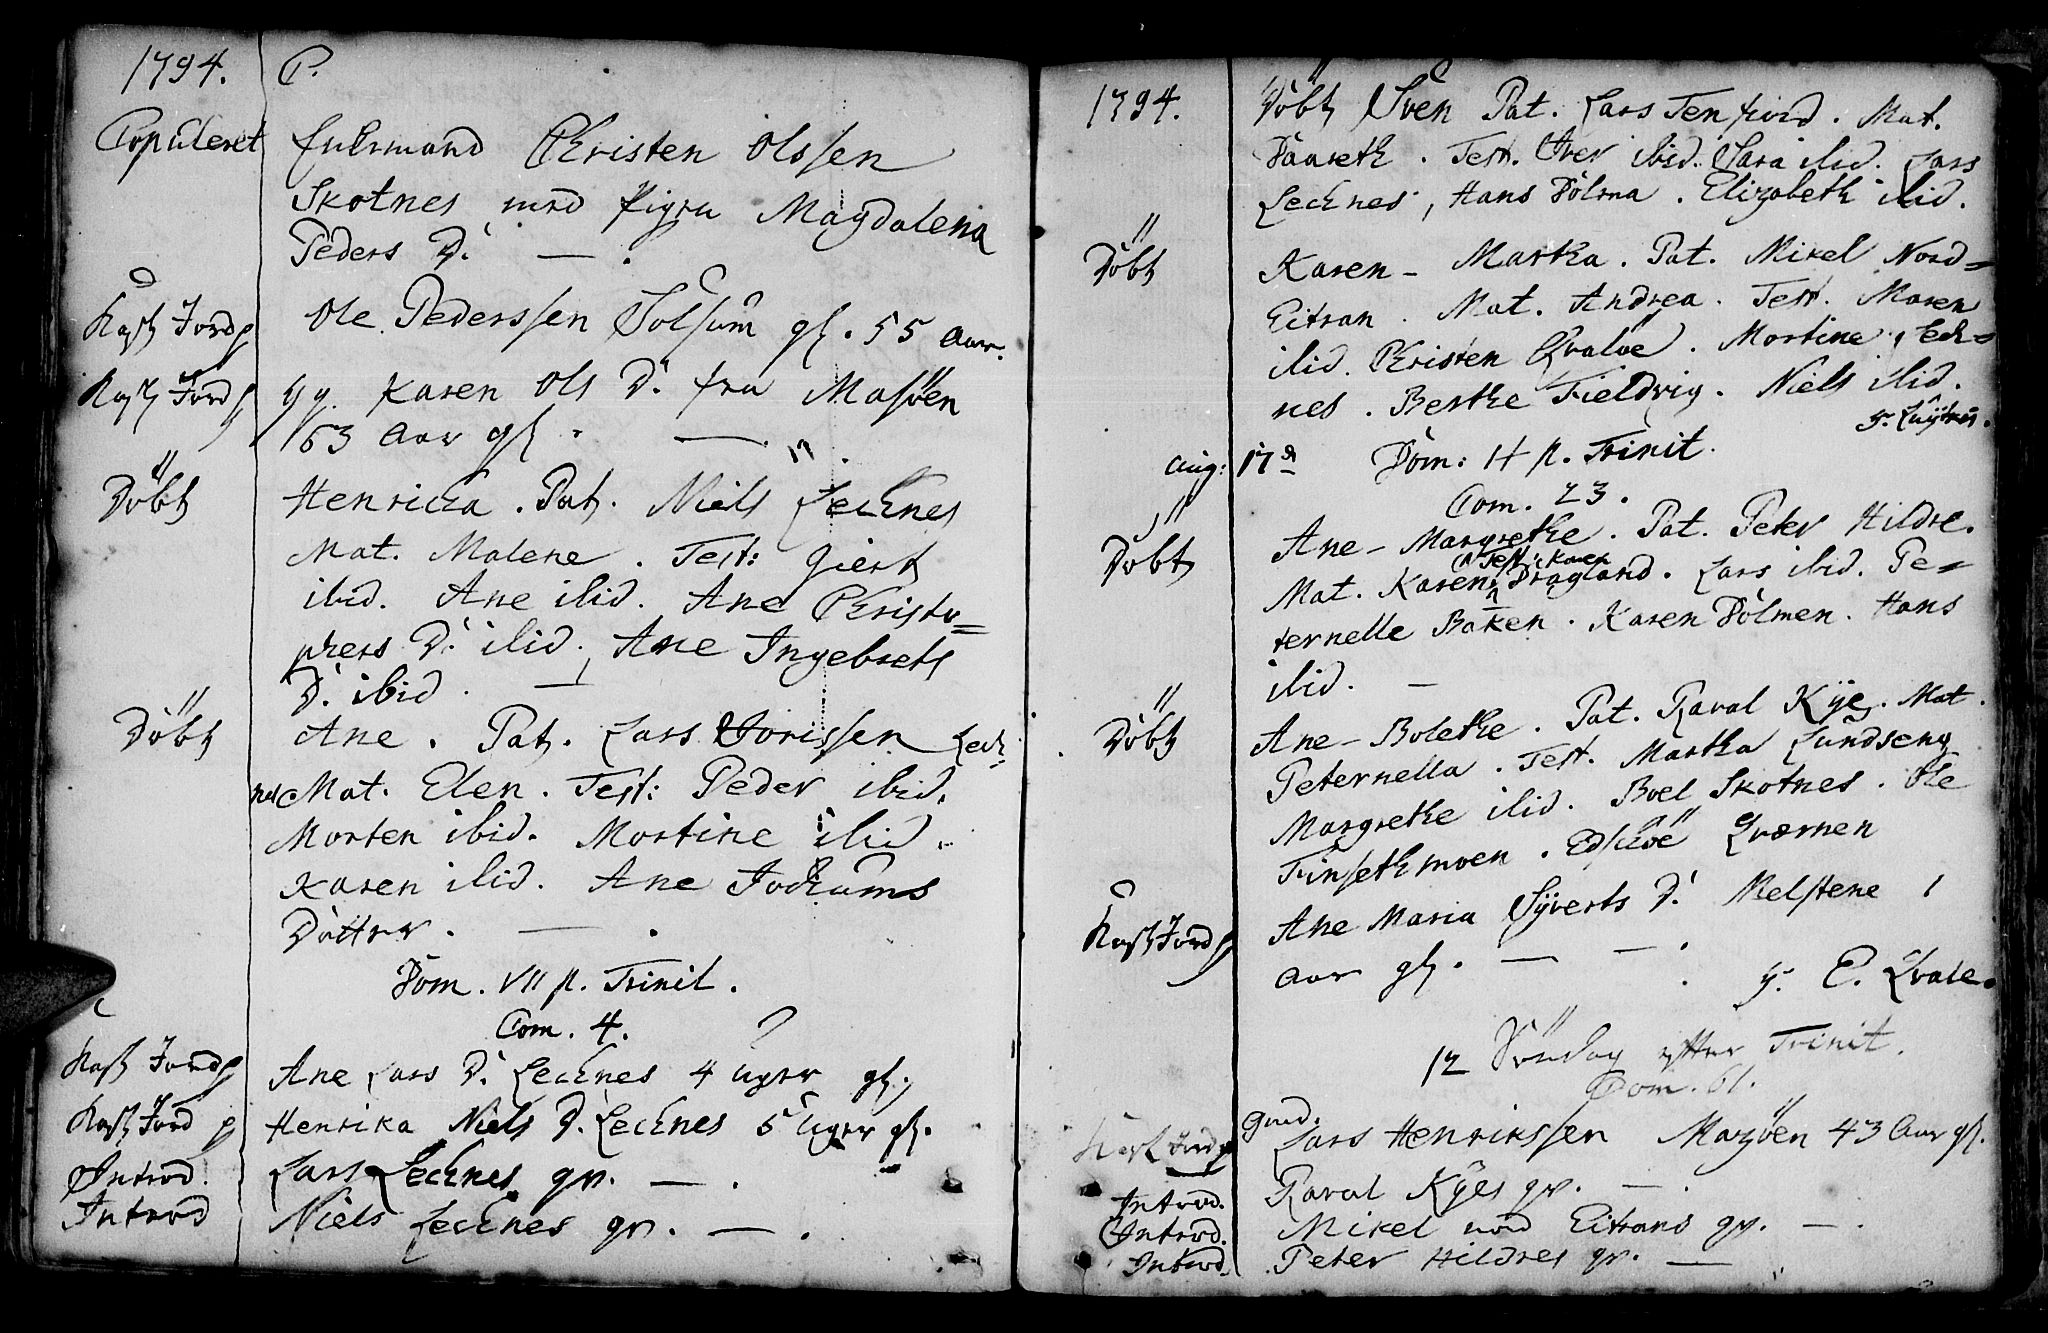 1794. P.
Copuleret Enkemand Christen Olssen
Skotnes med Pigen Magdalena
Peders D. — .
Kast Jord p Ole Pederssen Solsüm gl. 55 Aar.
Kast Jord p gg. Karen Ols D. fra Masöen
63 Aar gl. —
Döbt Henricha. Pat. Niels Lechnes
Mat. Malene. Test: Giert
ibid. Ane ibid. Ane Christo=
phers D. ibid. Ane Ingebrets
D. ibid. —
Döbt Ane. Pat. Lars Jorissen Lech=
nes Mat. Elen. Test: Peder ibid.
Morten ibid. Mortine ibid.
Karen ibid. Ane Jochums
Dötter. — .
Dom. VII p. Trinit.
Com. 4.
Kast Jord p Ane Lars D. Lechnes 4 Uger gl.
Kast Jord p Henrika Niels D. Lechnes 5 Uger gl.
Introd. Lars Lechnes qv. — .
Introd Niels Lechnes qv. — .
1794. Döbt Sven Pat. Lars Tenfiord. Mat.
Daareth. Test. Iver ibid. Sara ibid. Lars
Lechnes, Hans Dölma. Elizabeth ibid.
Döbt Karen- Martha. Pat. Mikel Nord=
Eitran. Mat. Andrea. Test. Maren
ibid. Christen Qvaløe. Mortine Lech=
nes. Berthe Fieldvig. Niels ibid.
Aug: 17d Dom: H p. Trinit.
Com. 23.
Döbt Ane- Margrethe. Pat. Peter Hildre.
Mat. Karen Dragland. Lars ibid. Pe=
ternelle Baken. Karen Dolmen. Hans
ibid. —
Döbt Ane- Bolethe. Pat. Raval Kÿe. Mat.
Peternella. Test. Martha Lundseng
Margrethe ibid. Boel Skotnes. Ole
Finsethmoen. Edschöe Qværnen
Kast Jord p Ane Maria Syverts D. Melstene 1
Aar gl. — — .
E. Qvale.
12 Söndag efter Trinit.
Com. 61.
Kast Jord p Lars Henrikssen Mazöen 43 Aar gl.
Introd. Raval Kÿes qv. — .
Introd. Mikel nord Eitrans qv. — .
Introd. Peter Hildres qv. —